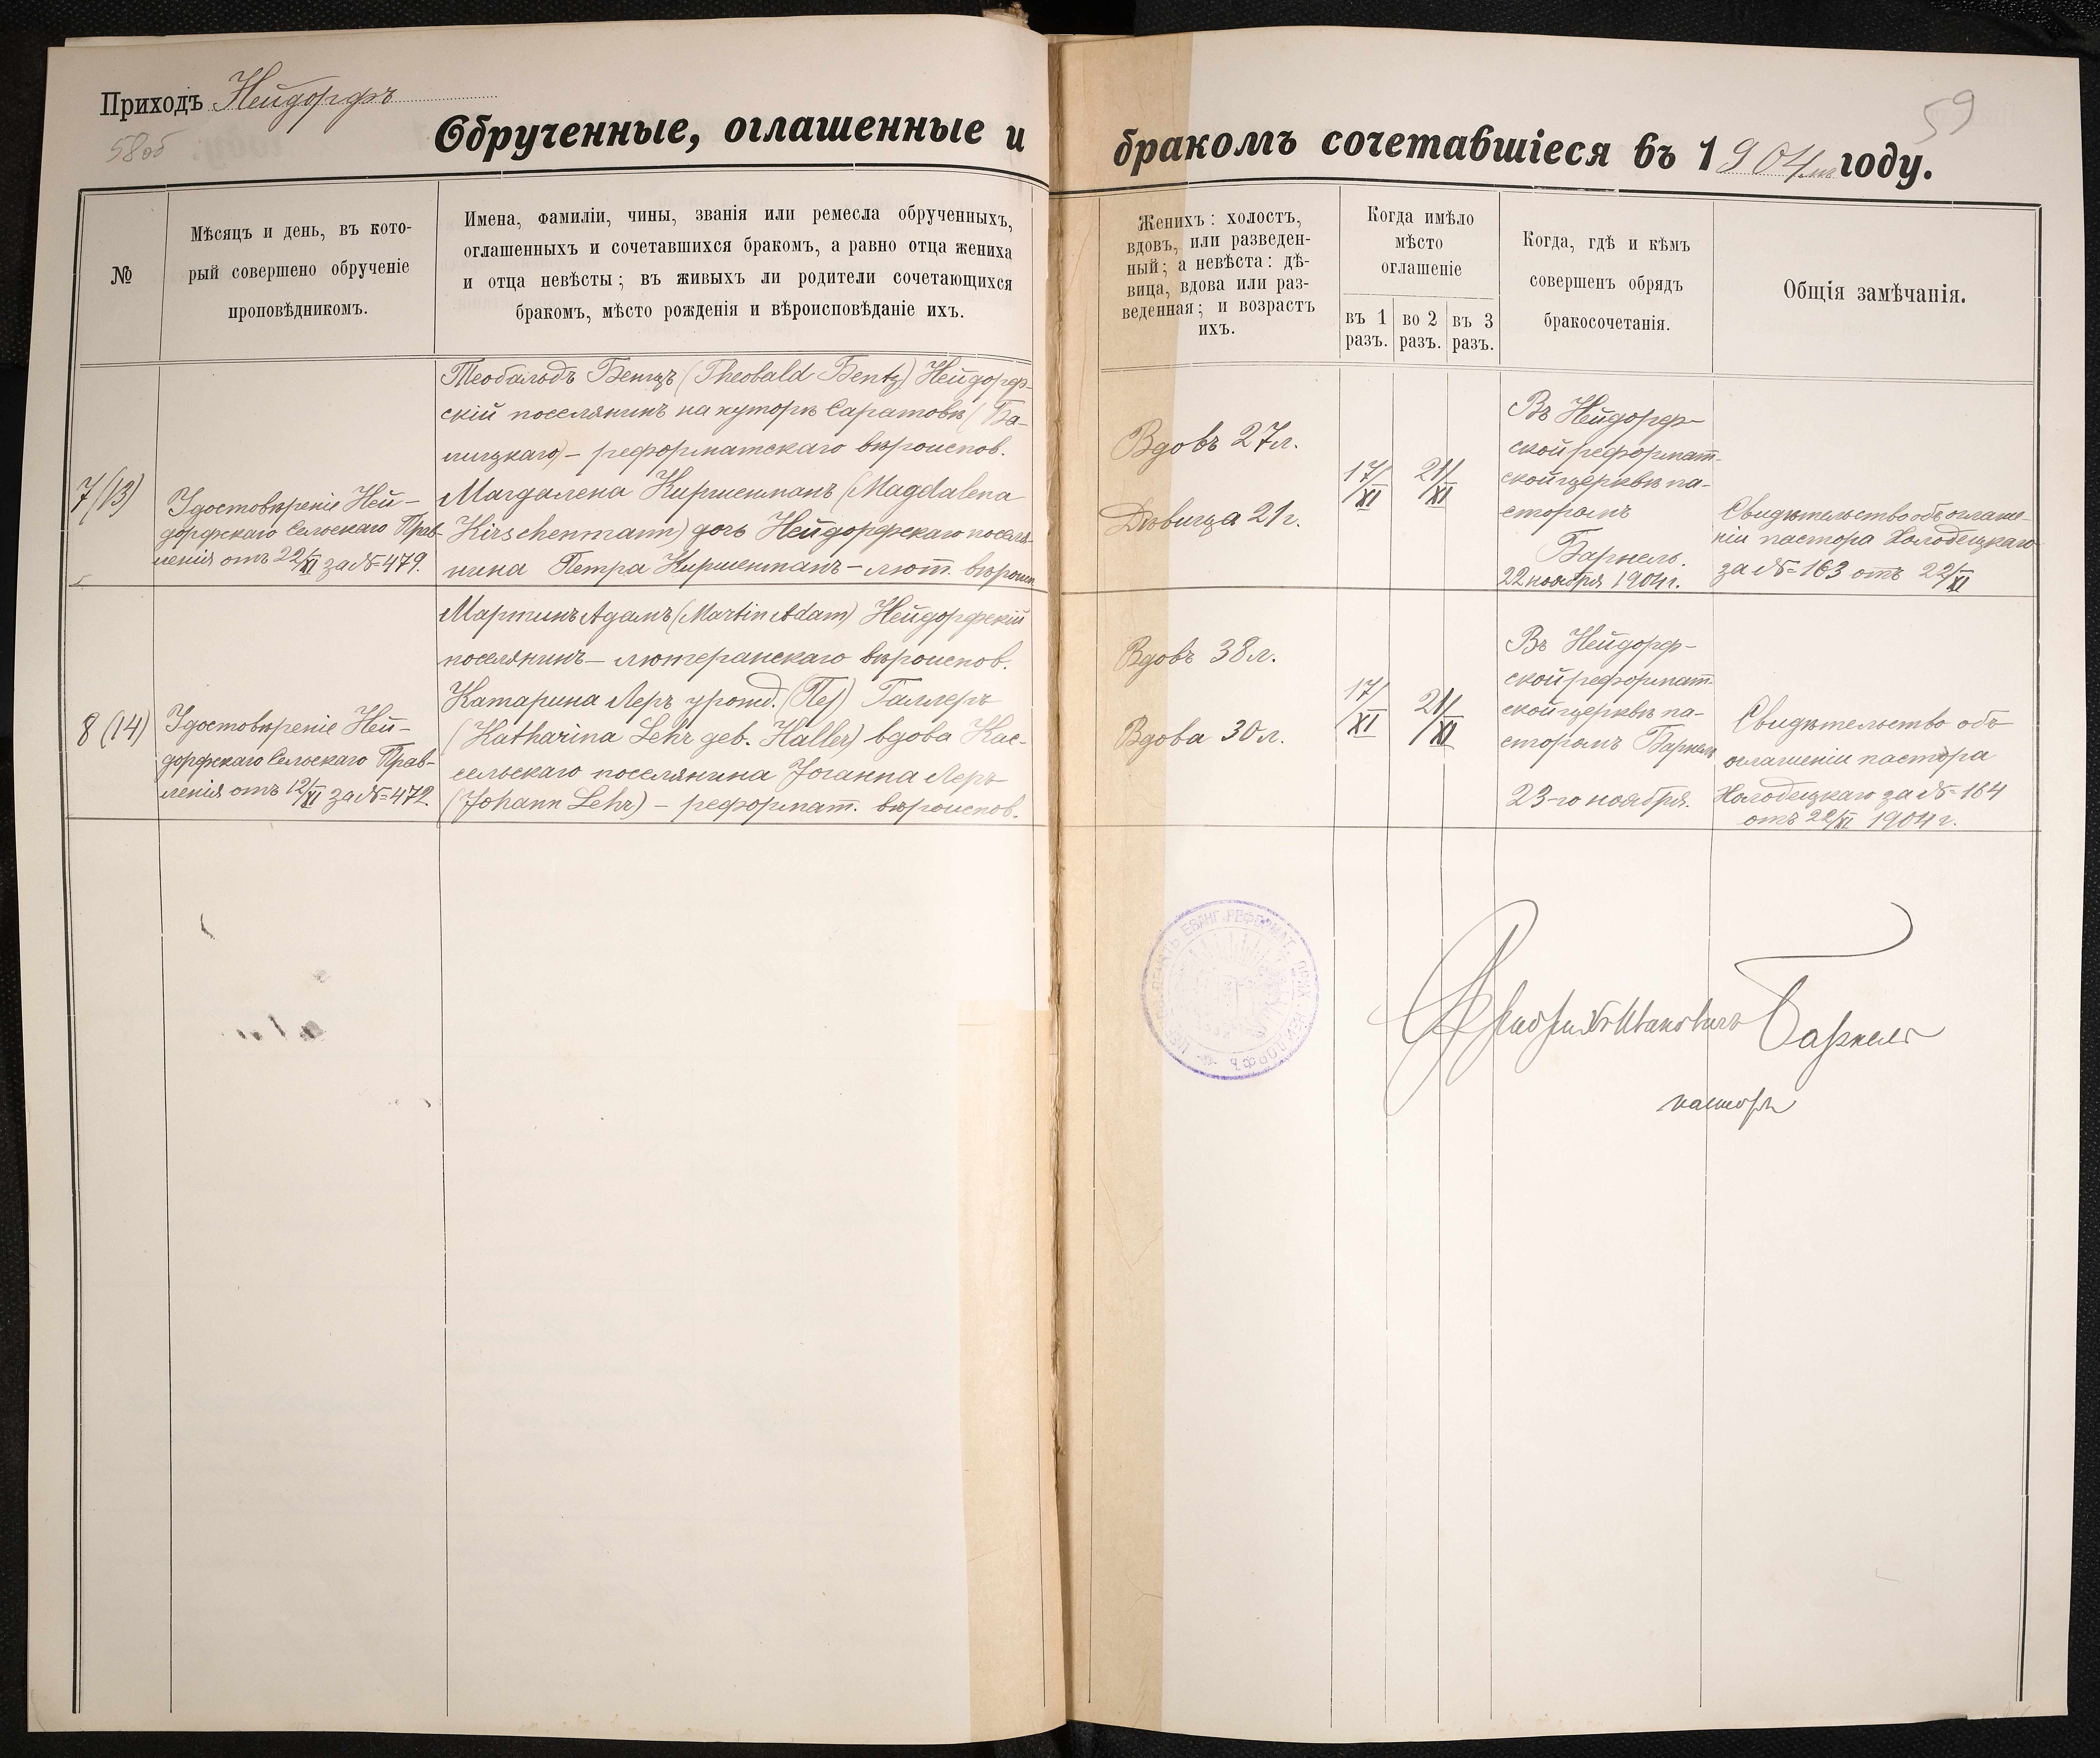 Приходъ Нейдорфъ
58об
59
Обрученные, оглашенные и бракомъ сочетавшіеся въ 1904мъ году.
№
Мѣсяцъ и день, въ кото-
рый совершено обрученіе
проповѣдникомъ.
Имена, фамиліи, чины, званія или ремесла обрученныхъ,
оглашенныхъ и сочетавшихся бракомъ, а равно отца жениха
и отца невѣсты; въ живыхъ ли родители сочетающихся
бракомъ, мѣсто рожденія и вѣроисповѣданіе ихъ.
Женихъ: холостъ,
вдовъ, или разведен-
ный; а невѣста: дѣ-
вица, вдова или раз-
веденная; и возрастъ
ихъ.
Когда имѣло
мѣсто
оглашеніе
въ 1
разъ.
во 2
разъ.
въ 3
разъ.
Когда, гдѣ и кѣмъ
совершенъ обрядъ
бракосочетанія.
Общія замѣчанія.
7/(13)
Удостовѣреніе Ней-
дорфскаго Сельскаго Прав-
ленія отъ 22/XI за №=479.
Теобальдъ Бенцъ (Theobald Bentz) Нейдорф-
скій поселянинъ на хуторѣ Саратовѣ (Ба-
лицкаго) – реформатскаго вѣроиспов.
Магдалена Киршенманъ (Magdalena
Kirschenmann) дочь Нейдорфскаго поселя-
нина Петра Киршенманъ – лют. вѣроисп.
Вдовъ 27л.
Дѣвица 21г.
17/XI
21/XI
Въ Нейдорф-
ской реформат-
ской церквѣ па-
сторомъ
Барнель.
22 ноября 1904г.
Свидѣтельство объ оглаше-
ніи пастора Холодецкаго
за №=163 отъ 22/XI
8 (14)
Удостовѣреніе Ней-
дорфскаго Сельскаго Прав-
ленія отъ 12/XI за №=472.
Мартинъ Адамъ (Martin Adam) Нейдорфскій
поселянинъ – лютеранскаго вѣроиспов.
Катарина Леръ урожд. Галлеръ
(Katharina Lehr geb. Haller) вдова Кас-
сельскаго поселянина Іоганна Леръ
(Johann Lehr) – реформат. вѣроиспов.
Вдовъ 38л.
Вдова 30л.
17/XI
21/XI
Въ Нейдорф-
ской реформат-
ской церквѣ па-
сторомъ Барнель
23-го ноября.
Свидѣтельство объ
оглашеніи пастора
Холодецкаго за №=164
отъ 22/XI 1904г.
ПЕЧАТЬ ЕВАНГ. РЕФОРМАТ. ПРИХ. НЕЙДОРФЪ
Ивановичъ Барнель
пасторъ